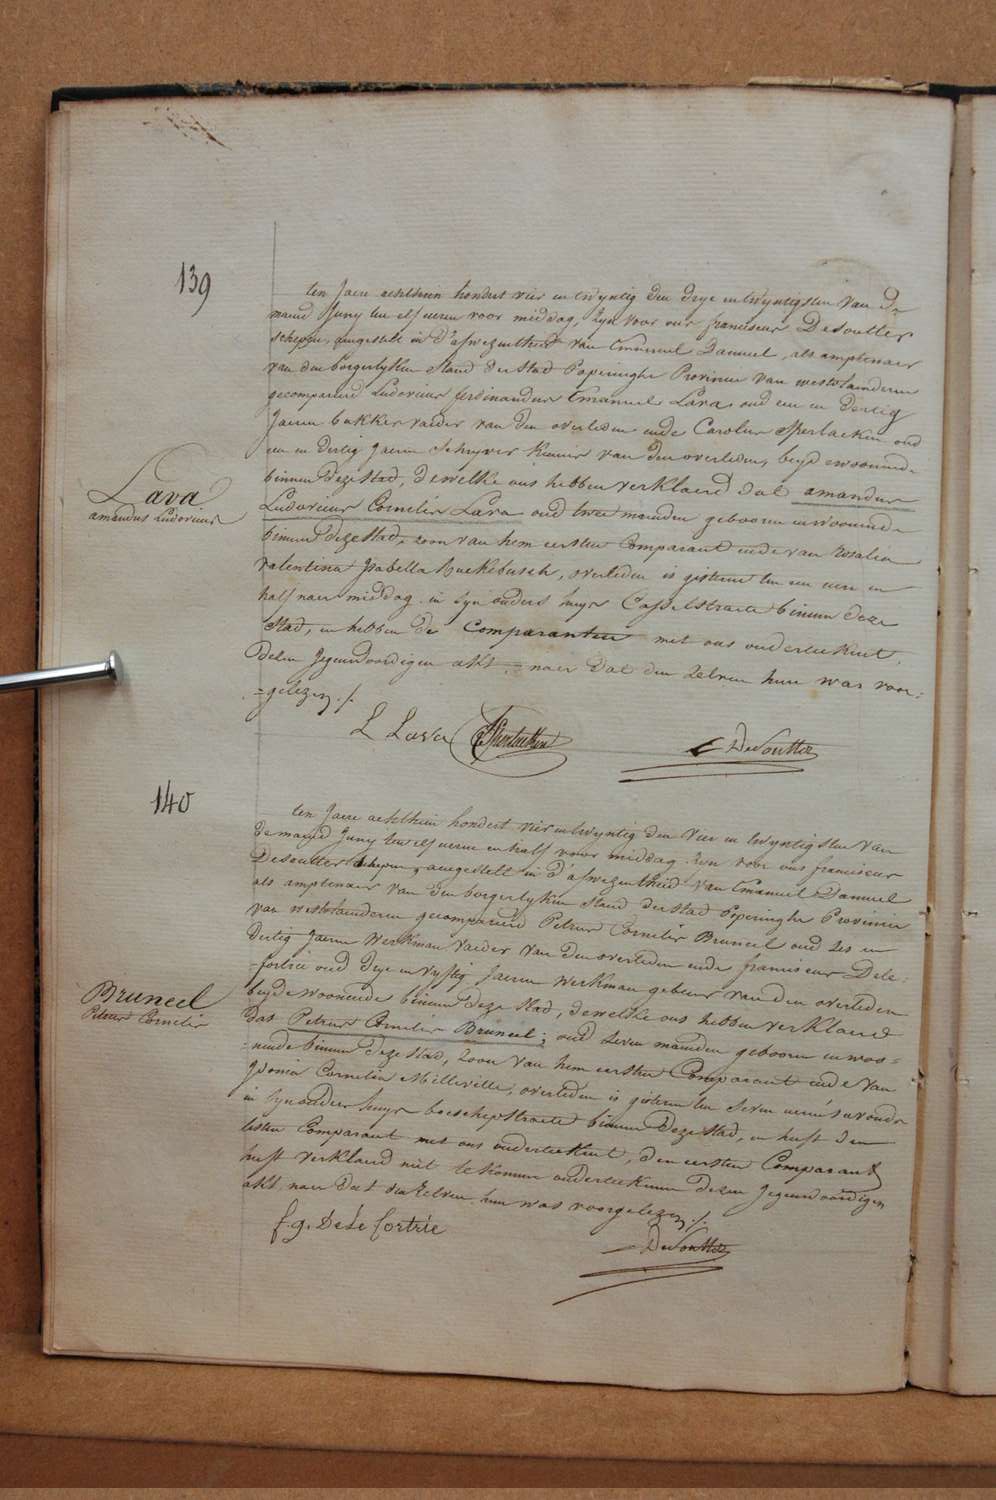 139
ten Jaere achthien hondert vier en twyntig den drye en twyntigsten van de
maend Juny ten elf ueren voor middag, zyn voor ons franciscus Desoutter
schepen, aengestelt in d'afwezentheid van Emanuel Dammel, als amptenaer
van den borgerlyken Stand der Stad Poperinghe Provincie van westvlaenderen
gecompareerd Ludovicus ferdinandus Emanuel Lava oud een en dertig
Jaeren bakker vaeder van den overleden ende Carolus Sperlaeken oud
een en dertig Jaeren Schryver Kennis van den overleden, beyde woonende
binnen deze Stad, dewelke ons hebben verklaerd dat amandus
Ludovicus Cornelis Lava oud twee maenden gebooren en woonende
binnen deze Stad, zoon van hem eersten Comparant ende van rosalia
valentina Isabella , overleden is gisteren ten een uere en
half naer middag in syn ouders huys Casselstraete binnen deze
Stad, en hebben de Comparanten met ons onderteekent,
dezen Jegenwoordigen akt, naer dat den zelven hun was voor:
=gelezen ./.
Lava
amandus Ludovicus
L Lava C Sperlaeken Desoutter
140
ten Jaere achthien hondert vier en twyntig den vier en twyntigsten van
de maend Juny ten elf ueren en half voor middag zyn voor ons franciscus
Desoutter schepen, aengestelt in d'afwezentheid van Emanuel Dammel
als amptenaer van den borgerlyken Stand der Stad Poperinghe Provincie
van westvlaenderen gecompareerd Petrus Cornelis Bruneel oud zes en
dertig Jaeren werkman vaeder van den overleden ende franciscus Dele:
=fortrie oud drye en vyftig Jaeren werkman gebuer van den overleden
beyde woonende binnen deze Stad, dewelke ons hebben verklaerd
dat Petrus Cornelis Bruneel, oud zeven maenden gebooren en woo=
=nende binnen deze Stad, zoon van hem eersten Comparant ende van
Cornelia Milleville, overleden is gisteren ten seven ueren 's avonds
in syn ouders huys boeschepstraete binnen deze Stad, en heeft den
lesten Comparant met ons onderteekent, den eersten Comparant
heeft verklaerd niet te konnen onderteekenen dezen Jegenwoordigen
akt, naer dat den zelven hun was voorgelezen ./.
Bruneel
Petrus Cornelis
f. g. Dele fortrie
Desoutter